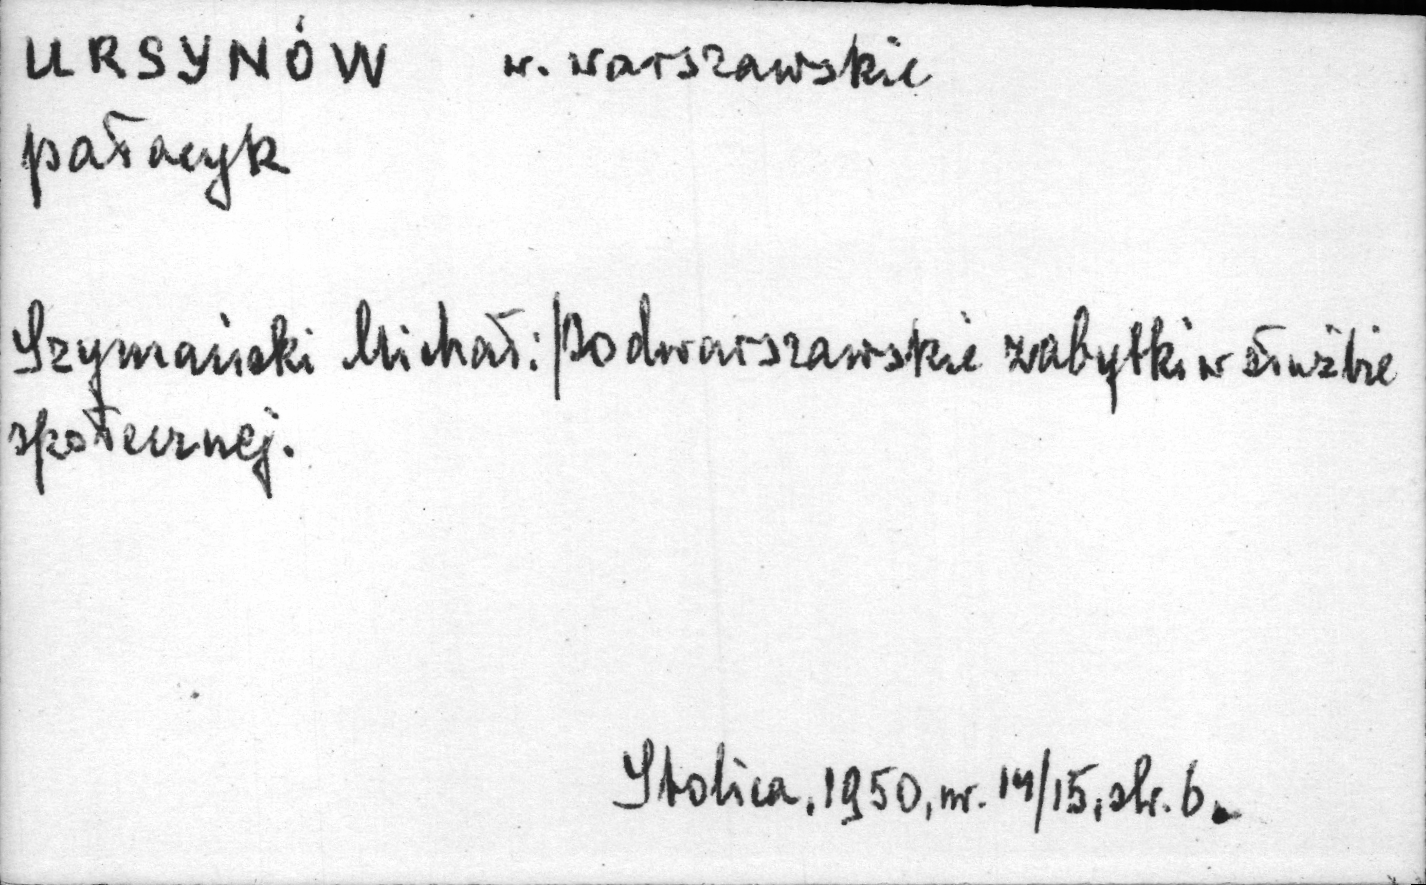 URSYNÓW w. warszawskie
pałacyk
Szymański Michał: Podwarszawskie zabytki w służbie
społecznej.
Stolica, 1950, nr. 14/15, str. 6.